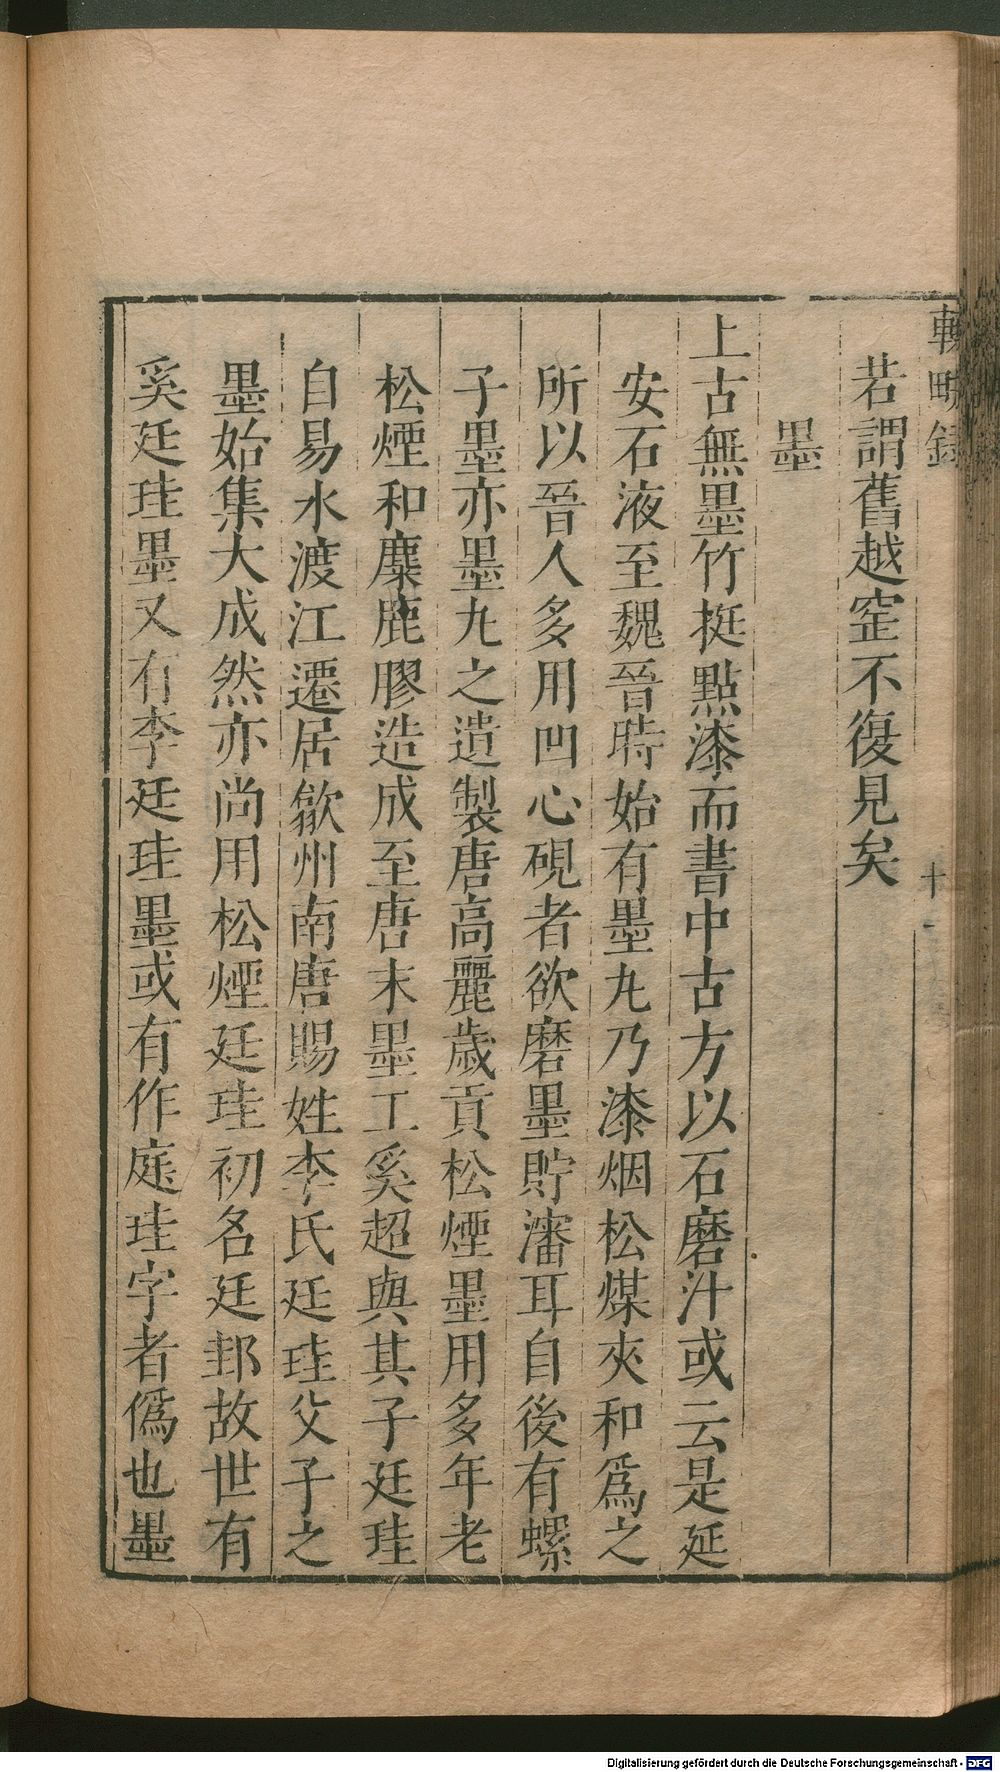 輟畊録
十一
若謂舊越窑不復見矣
墨
上古無墨竹挺點漆而書中古方以石磨汁或云是延
安石液至魏晉時始有墨丸乃漆烟松煤夾和爲之
所以晉人多用凹心硯者欲磨墨貯瀋耳自後有螺
子墨亦墨丸之遺製唐高麗歲貢松煙墨用多年老
松煙和麋鹿膠造成至唐末墨工奚超與其子廷珪
自易水渡江遷居歙州南唐賜姓李氏廷珪父子之
墨始集大成然亦尚用松煙廷珪初名廷邽故世有
奚廷珪墨又有李廷珪墨或有作庭珪字者僞也墨
Digitalisierung gefördert durch die Deutsche Forschungsgemeinschaft - DFG